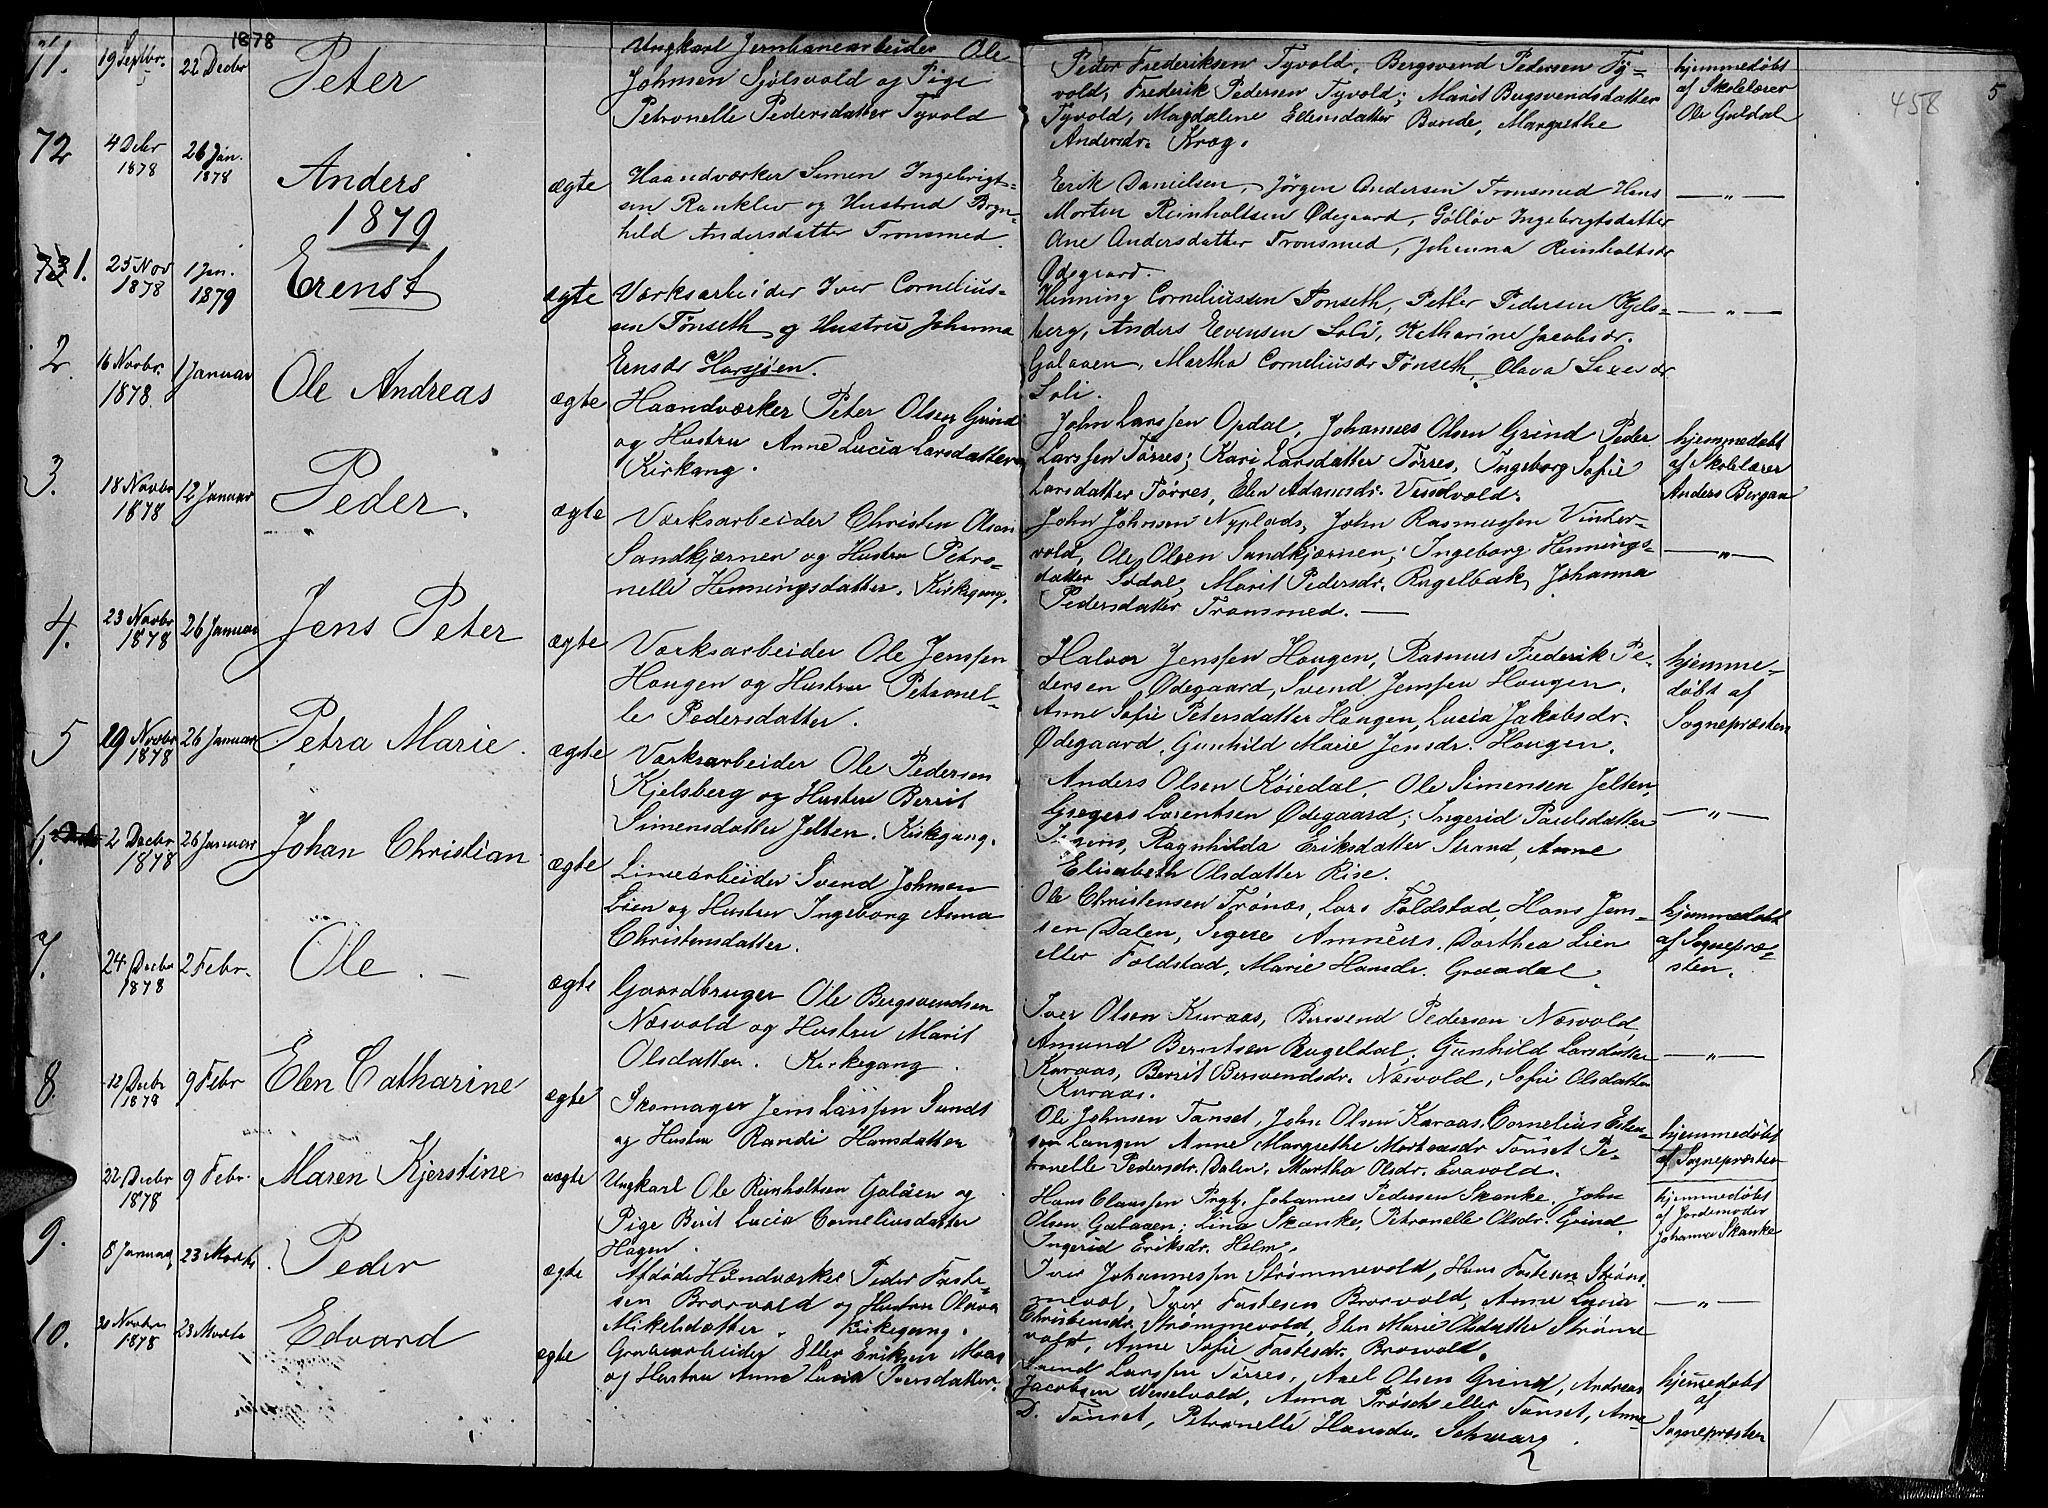 1878
71. 19 Septbr. 22 Decbr Peter
Ungkarl Jernbanearbeider Ole
Johnsen Sjølsvold og Pige
Petronelle Pedersdatter Tyvold
Peder Frederiksen Tyvold, Bergsvend Pedersen Ty-
vold, Frederik Pedersen Tyvold; Marit Bergsvendsdatter
Tyvold, Magdalene Ellensdatter Bonde, Margrethe
Andersdr. Krog.
hjemmedøbt
af Skolelærer
Ole Guldal
458
5
72 4 Decbr 1878 26 Jan. 1878 Anders ægte
Haandværker Simen Ingebrigt-
sen Ranklev og Hustrud Bryn-
hild Andersdatter Tronsmed.
Erik Danielsen, Jörgen Andersen Tronsmed Hans
Morten Reinholtsen Ødegaard, Gølløv Ingebrigtsdatter
Ane Andersdatter Tronsmed, Johanna Reinholtsdr
Ødegaard.
— " —
1879
73 1. 25 Nov 1878 1 Jan. 1879 Erenst ægte
Værksarbeider Iver Cornelius-
sen Tønseth og Hustru Johanna
Ernsdr Harsjøen.
Henning Corneliussen Tønseth, Petter Pedersen Kjels-
berg, Anders Evensen Soli, Katharine Jacobsdr.
Galaaen, Martha Corneliusdr Tønseth, Olava
Soli.
— " —
2. 16 Novbr. 1878. 1 Januar Ole Andreas ægte
Haandværker Peter Olsen Grind
og Hustru Anne Lucia Larsdatter
Kirkang.
John Larssen Opdal, Johannes Olsen Grind Peder
Larssen Tørres; Kari Larsdatter Tørres, Ingeborg Sofie
Larsdatter Tørres, Elen Adamsdr. Vendvold.
hjemmedøbt
af Skolelærer
Anders Bergan
3. 18 Novbr 1878 12 Januar Peder. ægte
Værksarbeider Christen Olsen
Sandkjærnen og Hustru Petro-
nelle Henningsdatter. Kirkegang.
John Johnsen Nyplads, John Rasmussen Vinter-
vold, Ole Olsen Sandkjærnen; Ingeborg Hennings-
datter Sødal, Marit Pedersdr. Rugelbak, Johanna
Pedersdatter Tronsmed. —
— " —
4. 23 Novbr 1878 26 Januar Jens Peter ægte
Værksarbeider Ole Jenssen
Hougen og Hustru Petronel-
le Pedersdatter.
Halvor Jenssen Hougen, Rasmus Frederik Pe-
dersen Ødegaard, Svend Jenssen Hougen.
Anne Sofie Petersdatter Hougen, Lucia Jakobsdr.
Ødegaard, Gunhild Marie Jensdr. Hougen.
hjemme-
døbt af
Sognepræsten
5 29 Novbr 1878 26 Januar Petra Marie. ægte
Værksarbeider Ole Pedersen
Kjelsberg og Hustru Berrit
Simensdatter Jelten. Kirkegang.
Anders Olsen Køiedal, Ole Simensen Jelten,
Gregers Larentsen Ødegaard; Ingerid Paulsdatter
Ragnhilda Eriksdatter Strand, Anne
Elisabeth Olsdatter Rise.
— " —
6. 2 Decbr 1878 26 Januar Johan Christian ægte
Liniearbeider Svend Johnsen
Lien og Hustru Ingeborg Anna
Christensdatter.
Ole Christensen Trønæs, Lars Foldstad, Hans Jens-
sen Dalen, Segere Amnéus. Dorthea Lien
eller Foldstad, Marie Hansdr. Graadal.
hjemmedøbt
af Sognepræ-
sten.
7. 24 Decbr 1878 2 Febr. Ole. — ægte
Gaardbruger Ole Bergsvendsen
Næsvold og Hustru Marit
Olsdatter. Kirkegang.
Iver Olsen Kuraas, Bersvend Pedersen Næsvold
Amund Berntsen Rugeldal, Gunhild Larsdatter
Kuraas, Berrit Bersvendsdr. Næsvold, Sofie Olsdatter
Kuraas.
— " —
8. 12 Decbr 1878 9 Febr Elen Catharine ægte
Skomager Jens Larssen Sundt
og Hustru Randi Hansdatter
Ole Johnsen Tønset, John Olsen Kuraas, Cornelius Elen-
sen Langen Anne Margrethe Mortensdr Tønset Pe-
tronelle Pedersdr. Dalen, Martha Olsdr. Evavold.
hjemmedøbt
af Sognepræsten
22 Decbr 1878 9 Febr. Maren Kjerstine uægte
Ungkarl Ole Reinholtsen Galåen og
Pige Berit Lucia Corneliusdatter
Hagen.
Hans Claussen Prgt, Johannes Pedersen Skanke. John
Olsen Galaaen; Lina Skanke, Petronelle Olsdr. Grind
Ingerid Eriksdr. Holm.
hjemmedøbt
af Jordemoder
Johanna Skanke
9. 8 Januar 23 Marts. Peder ægte
Afdøde Håndværker Peder Faste-
sen Brorvold og Hustru Olava
Mikelsdatter. Kirkegang.
Iver Johannessen Strømmevold, Hans Fastesen Strøm-
mevol, Iver Fastesen Brorvold, Anne Lucia
Christensdr. Strømmevold, Elen Marie Olsdatter Strøme
volt, Anne Sofie Fastesdr. Brorvold.
— " —
10. 30 Novbr 1878 23 Marts Edvard ægte
Grubearbeider Eller Eriksen Moan
og Hustru Anne Lucia Iversdatter.
Svend Larssen Tørres, Axel Olsen Grind, Andreas
Jacobsen Wesselvold, Anna Prøsch eller Tønset, Anne
D. Tønset, Petronelle Hansdr. Schwarz.
hjemmedøbt
af
Sognepræsten